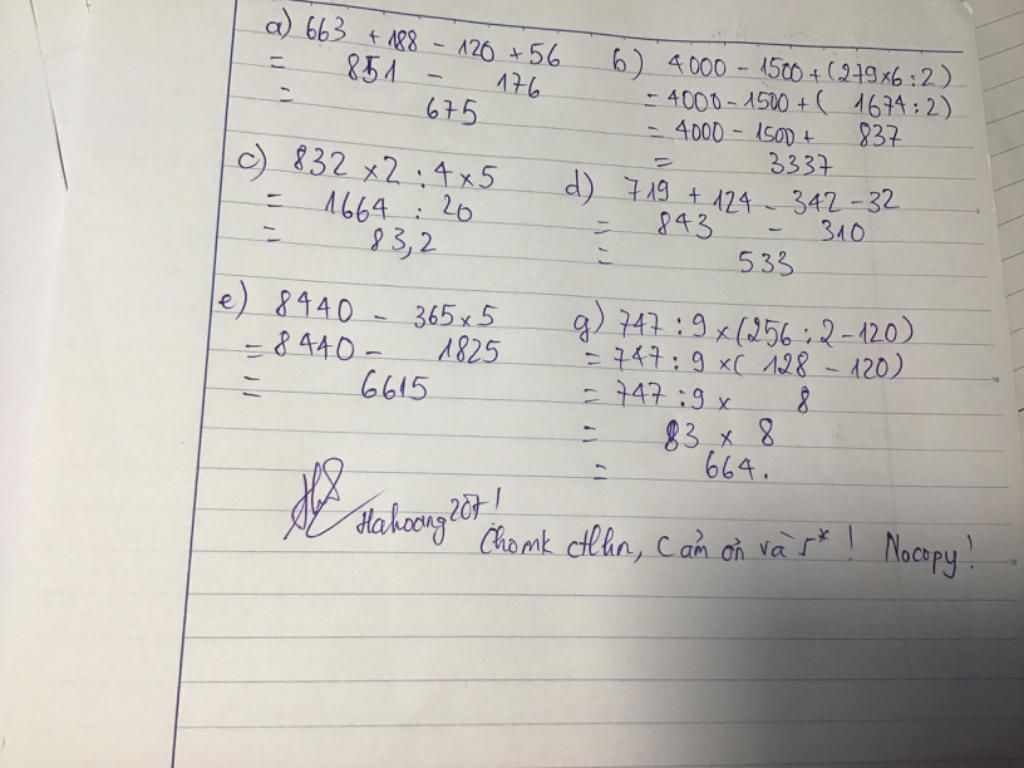 a) 663 + 188 - 120 + 56
= 851 - 176
= 675
b) 4000 - 1500 + (279 x 6 : 2)
= 4000 - 1500 + ( 1674 : 2)
= 4000 - 1500 + 837
= 3337
c) 832 x 2 : 4 x 5
= 1664 : 20
= 83,2
d) 719 + 124 - 342 - 32
= 843 - 310
= 533
e) 8440 - 365 x 5
= 8440 - 1825
= 6615
g) 747 : 9 x (256 : 2 - 120)
= 747 : 9 x ( 128 - 120)
= 747 : 9 x 8
= 83 x 8
= 664.
Hahoang207!
Chomk ctlhn, Cảm ơn và 5* ! Nocopy!